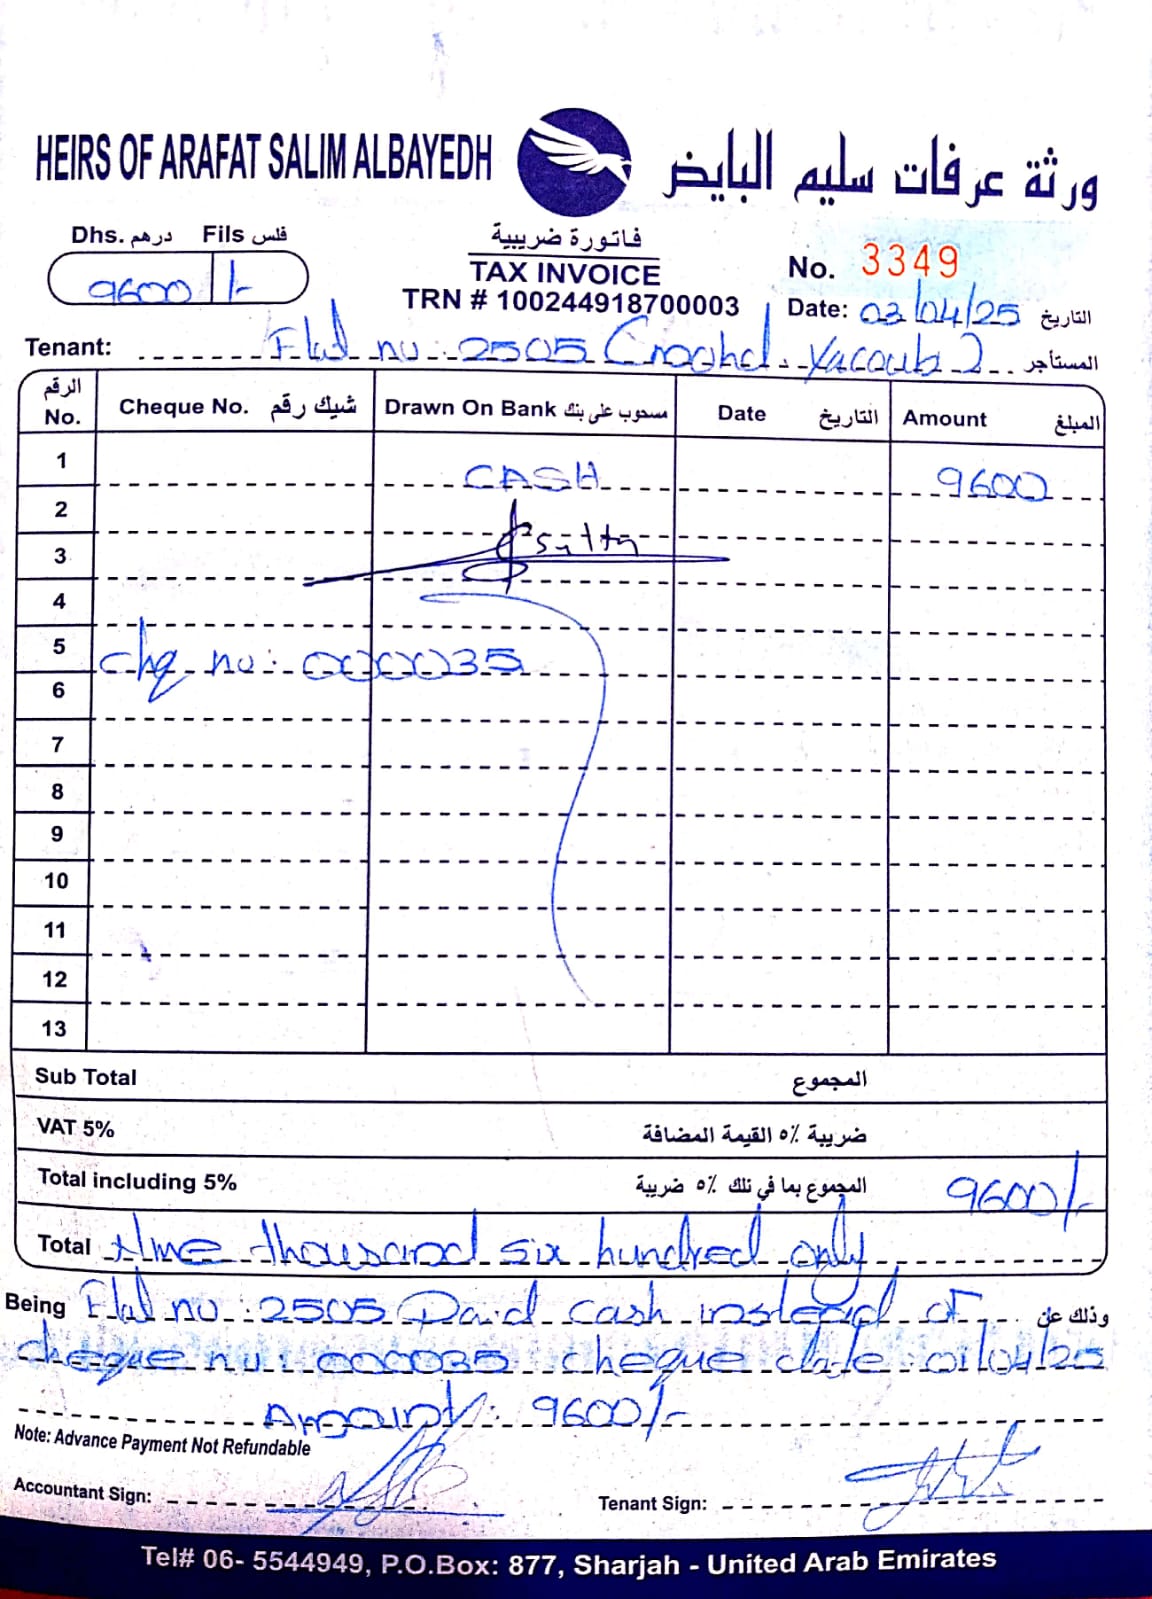 HEIRS OF ARAFAT SALIM ALBAYEDH ورثة عرفات سليم البايض
Dhs. درهم Fils فلس
9600 /-
فاتورة ضريبية
TAX INVOICE
TRN # 100244918700003
No. 3349
Date: 03/04/25 التاريخ
Tenant: Flat no: 2505 Yacoub 2 المستأجر
الرقم No. Cheque No. شيك رقم Drawn On Bank مسحوب على بنك Date التاريخ Amount المبلغ
1 CASH 9600
2
3
4
5 chq no: 000035
6
7
8
9
10
11
12
13
Sub Total المجموع
VAT 5% ضريبة ٥% القيمة المضافة
Total including 5% المجموع بما في تلك ٥% ضريبة 9600/-
Total Nine thousand six hundred only
Being Flat no: 2505 Paid cash instead of وذلك عن
cheque no: 000035 cheque date: 01/04/25
Amount: 9600/-
Note: Advance Payment Not Refundable
Accountant Sign:
Tenant Sign:
Tel# 06- 5544949, P.O.Box: 877, Sharjah - United Arab Emirates